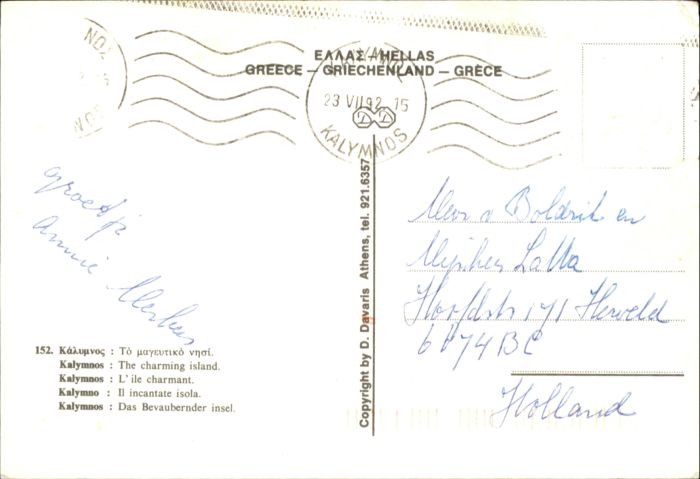 ΕΛΛΑΣ – HELLAS
GREECE – GRIECHENLAND – GRÈCE
ΝΟΣ
NOS
23 VII 92 15
KALYMNOS
D D
groetjes
Annie
Mevr v Boldrik en
Lalla
171 Herveld
6674 BC
Holland
152. Κάλυμνος : Τὸ μαγευτικὸ νησί.
Kalymnos : The charming island.
Kalymnos : L' ile charmant.
Kalymno : Il incantate isola.
Kalymnos : Das Bevaubernder insel.
Copyright by D. Davaris Athens, tel. 921.6357